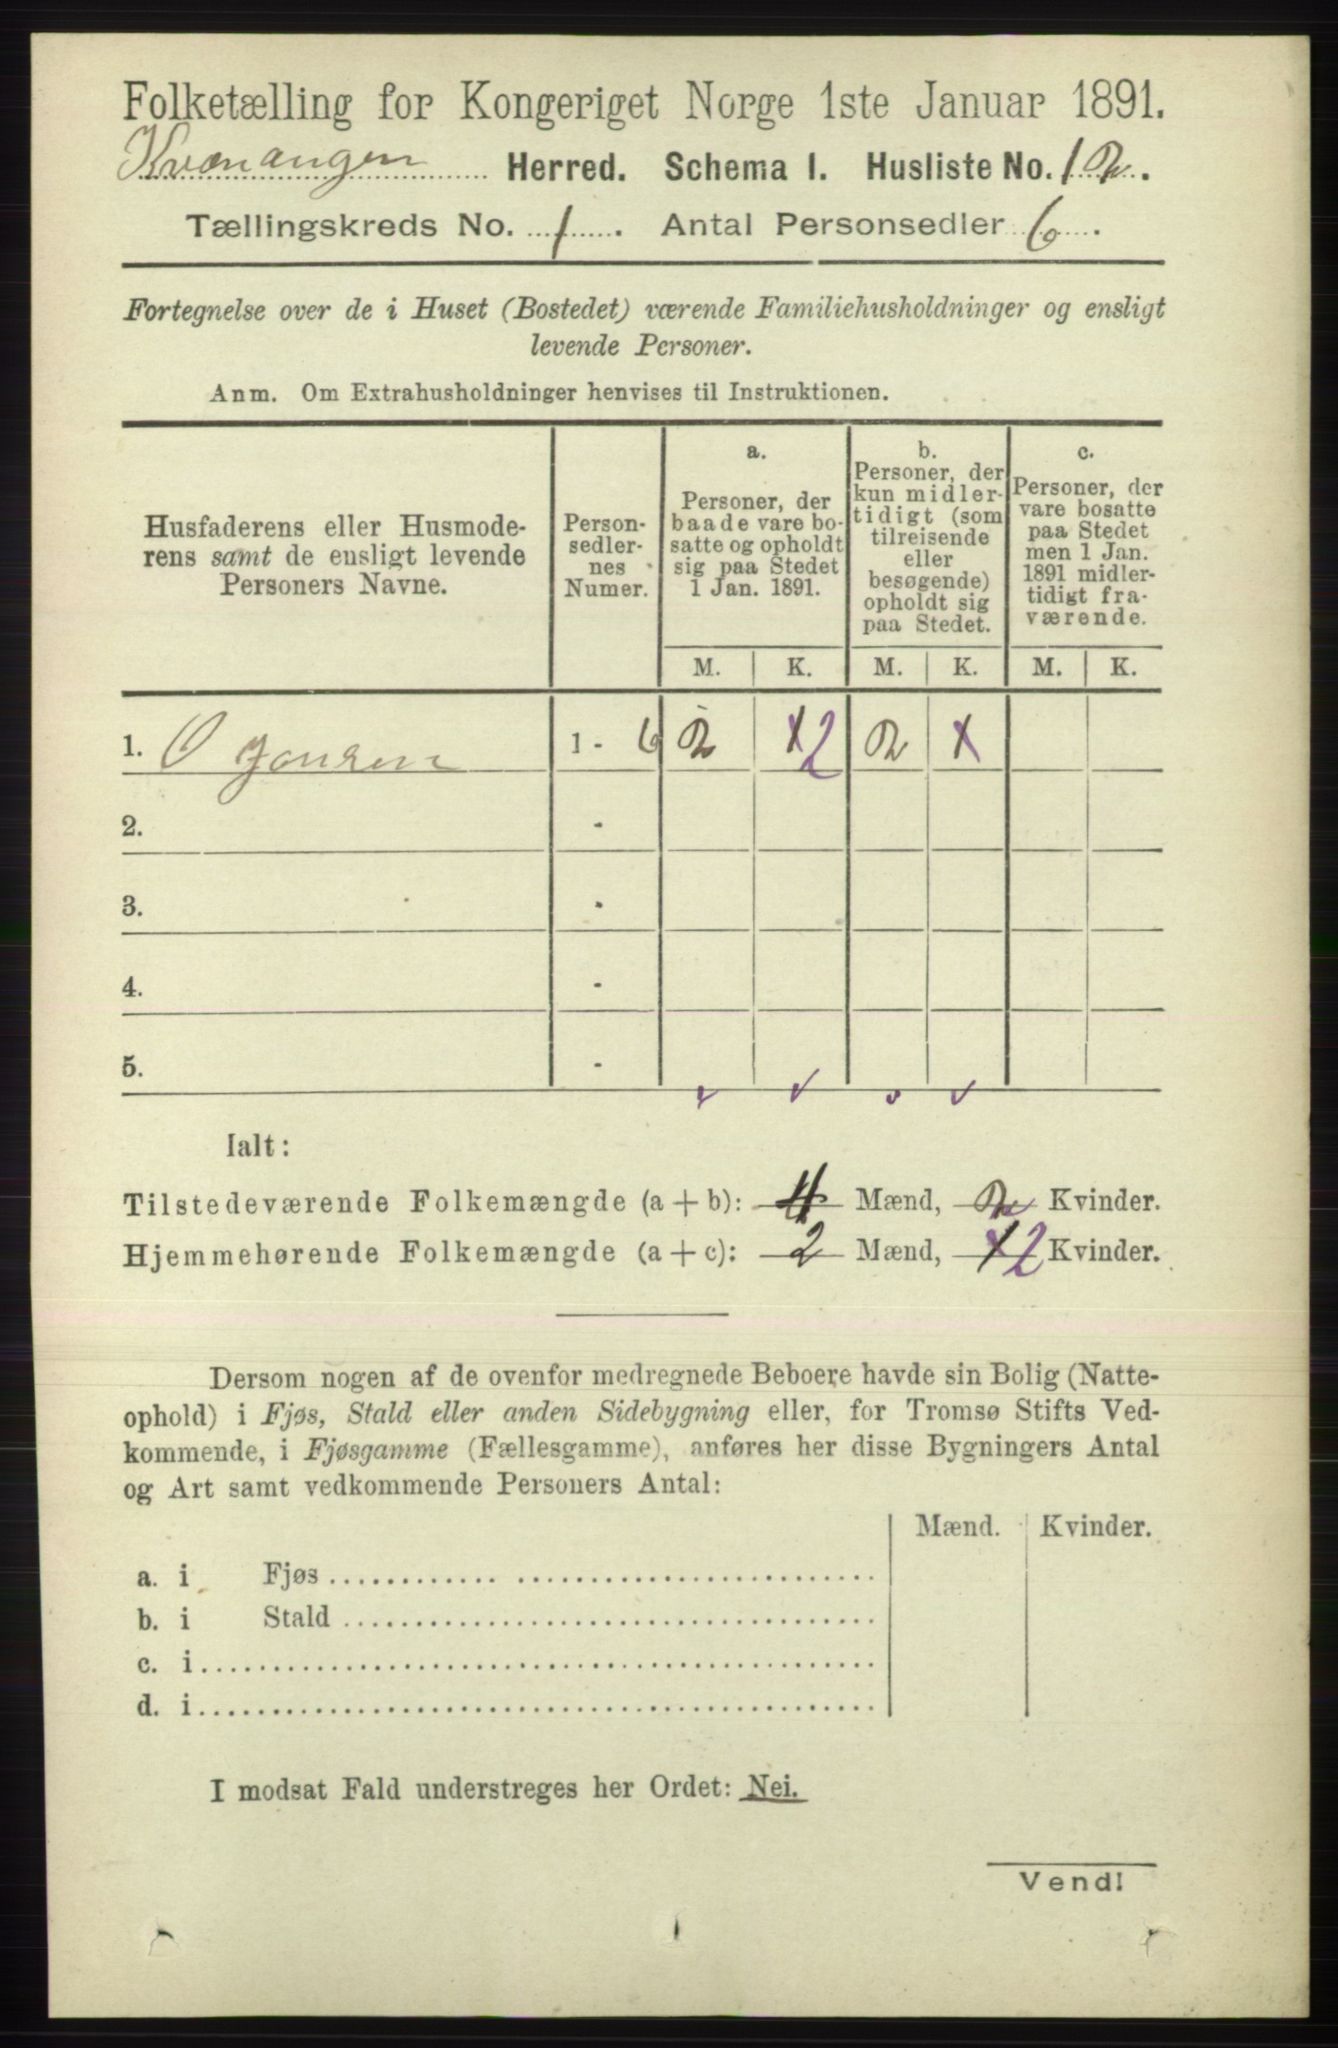 Folketælling for Kongeriget Norge 1ste Januar 1891.
Kvænangen Herred. Schema I. Husliste No. 12.
Tællingskreds No. 1. Antal Personsedler 6.
Fortegnelse over de i Huset (Bostedet) værende Familiehusholdninger og ensligt
levende Personer.
Anm. Om Extrahusholdninger henvises til Instruktionen.
Husfaderens eller Husmode-
rens samt de ensligt levende
Personers Navne.
Person-
sedler-
nes
Numer.
a.
Personer, der
baade vare bo-
satte og opholdt
sig paa Stedet
1 Jan. 1891.
b.
Personer, der
kun midler-
tidigt (som
tilreisende
eller
besøgende)
opholdt sig
paa Stedet.
c.
Personer, der
vare bosatte
paa Stedet
men 1 Jan.
1891 midler-
tidigt fra-
værende.
M. K. M. K. M. K.
1. O Jonsen 1 - 6 2 2 2
2. -
3. -
4. -
5. -
Ialt:
Tilstedeværende Folkemængde (a + b): 4 Mænd, 2 Kvinder.
Hjemmehørende Folkemængde (a + c): 2 Mænd, 2 Kvinder.
Dersom nogen af de ovenfor medregnede Beboere havde sin Bolig (Natte-
ophold) i Fjøs, Stald eller anden Sidebygning eller, for Tromsø Stifts Ved-
kommende, i Fjøsgamme (Fællesgamme), anføres her disse Bygningers Antal
og Art samt vedkommende Personers Antal:
Mænd. Kvinder.
a. i Fjøs
b. i Stald
c. i
d. i
I modsat Fald understreges her Ordet: Nei.
Vend!